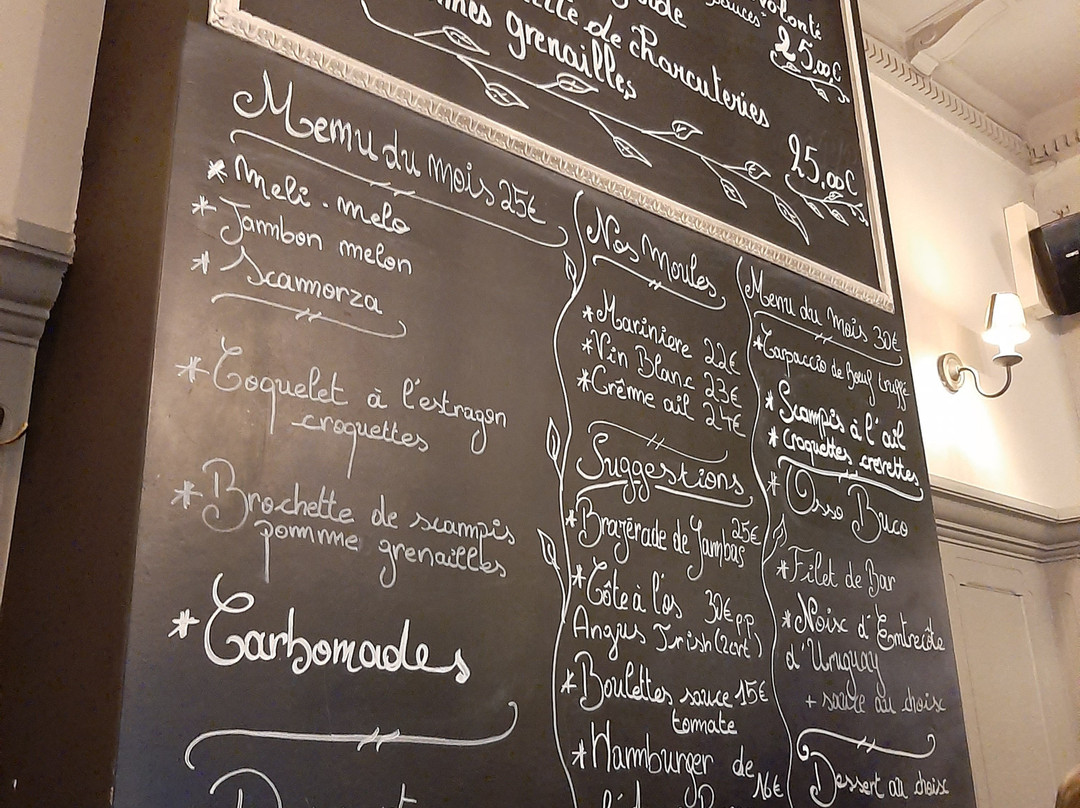 volonté
sauces
25,00€
de charcuteries
grenailles
25,00€
Memu du mois 25€
* Meli - melo
* Jambon melon
* Scammorza
* Coquelet à l'estragon
croquettes
* Brochette de scampis
pomme grenailles
* Carbomades
Nos Moules
* Mariniere 22€
* Vin Blanc 23€
* Crême ail 24€
Suggestions
* Brazérade de Jambas 25€
* Côte à l'os 30€ pp
Angus Irish (2cvt)
* Boulettes sauce 15€
tomate
* Hammburger de
16€
Menu du mois 30€
* Carpaccio de Boeuf truffé
* Scampis à l'ail
* croquettes crevettes
* Osso Buco
* Filet de Bar
* Noix d'Entrecôte
d'Uruguay
+ sauce au choix
Dessert au choix